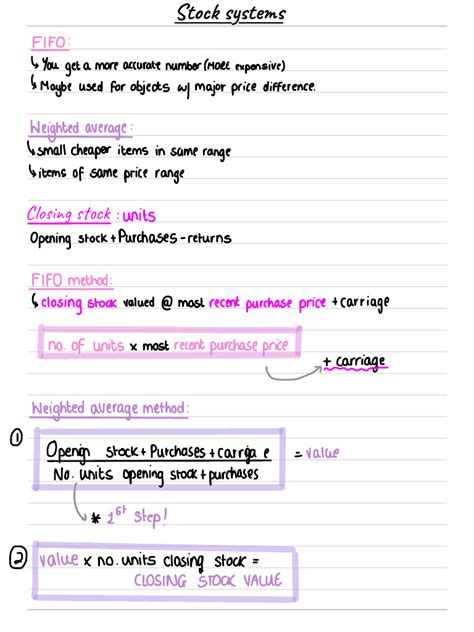 Stock systems
FIFO:
↳ You get a more accurate number (more expensive)
↳ Maybe used for objects w/ major price difference.
Weighted average:
↳ small cheaper items in same range
↳ items of same price range
Closing stock : units
Opening stock + Purchases - returns
FIFO method:
↳ closing stock valued @ most recent purchase price + carriage
no. of units x most recent purchase price
+ carriage
Weighted average method:
① Openign stock + Purchases + carrage = value
No. units opening stock + purchases
* 1st step!
② value x no. units closing stock =
CLOSING STOCK VALUE